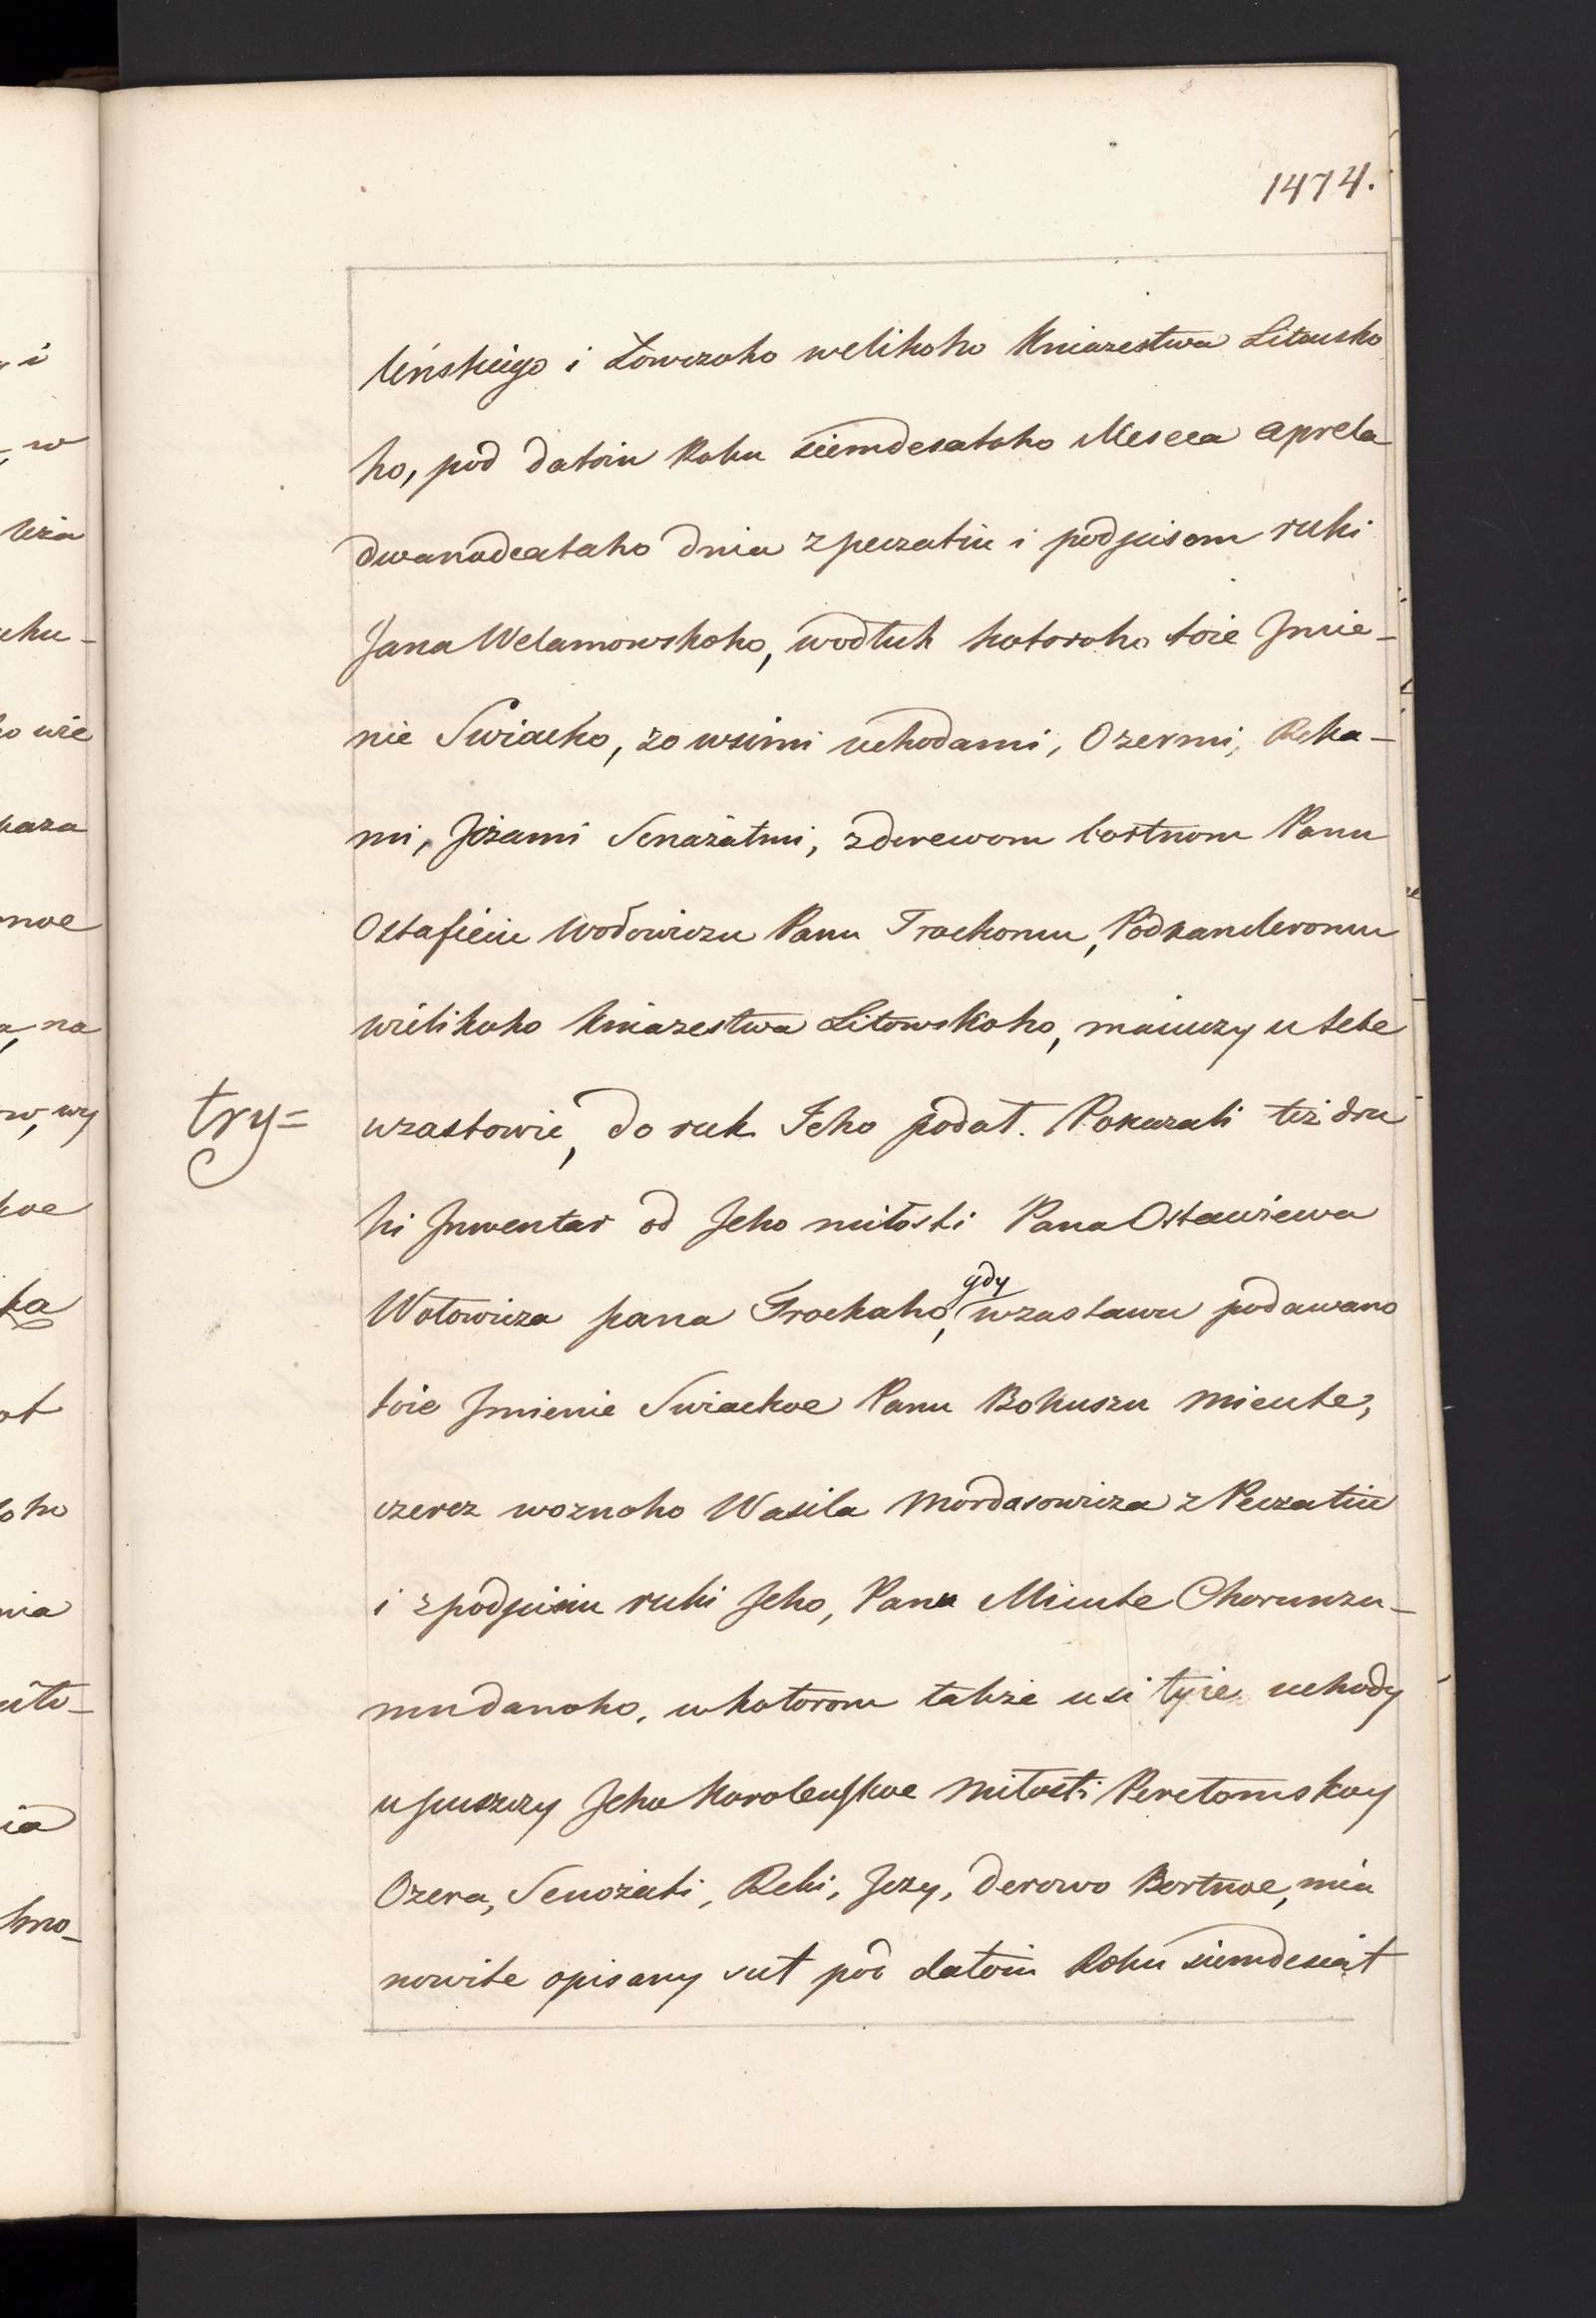 1474.
leńskiego i Łowczoho welikoho Kniazestwa Litowsko
ho, pod datoiu Roku siemdesatoho Meseca aprela
dwanadcatoho dnia z peczatiu i podpisom ruki
Jana Welamowskoho, wodłuh kotoroho toie Jmie-
nie Swiacko, zo wsimi uchodami, Ozermi, Reka-
mi, Jezami Senażatmi, z derewom bortnom Panu
Ostafieiu Wołowiczu Panu Trockomu, Podkancleromu
wielikoho Kniazestwa Litowskoho, maiuczy u sebe
try= uzastowie, do ruk Jeho podał. Pokazali też dru
hi Jnwentar od Jeho miłosti Pana Ostawiewa
Wołowicza pana Trockaho, gdy w zastawu podawano
toie Jmienie Swiackoe Panu Bohuszu Micute,
czerez woznoho Wasila Mordasowicza z Peczatiu
i z podpisiu ruki Jeho, Panu Micute Chorunzu-
mu danoho, w kotorom takze usi tyie uchody
u puszczy Jeho Korolewskoe Miłosti Perełomskoy
Ozera, Senożati, Reki, Jezy, Derowo Bortnoe, mia
nowite opisany sut pod datoiu Roku siemdesiat